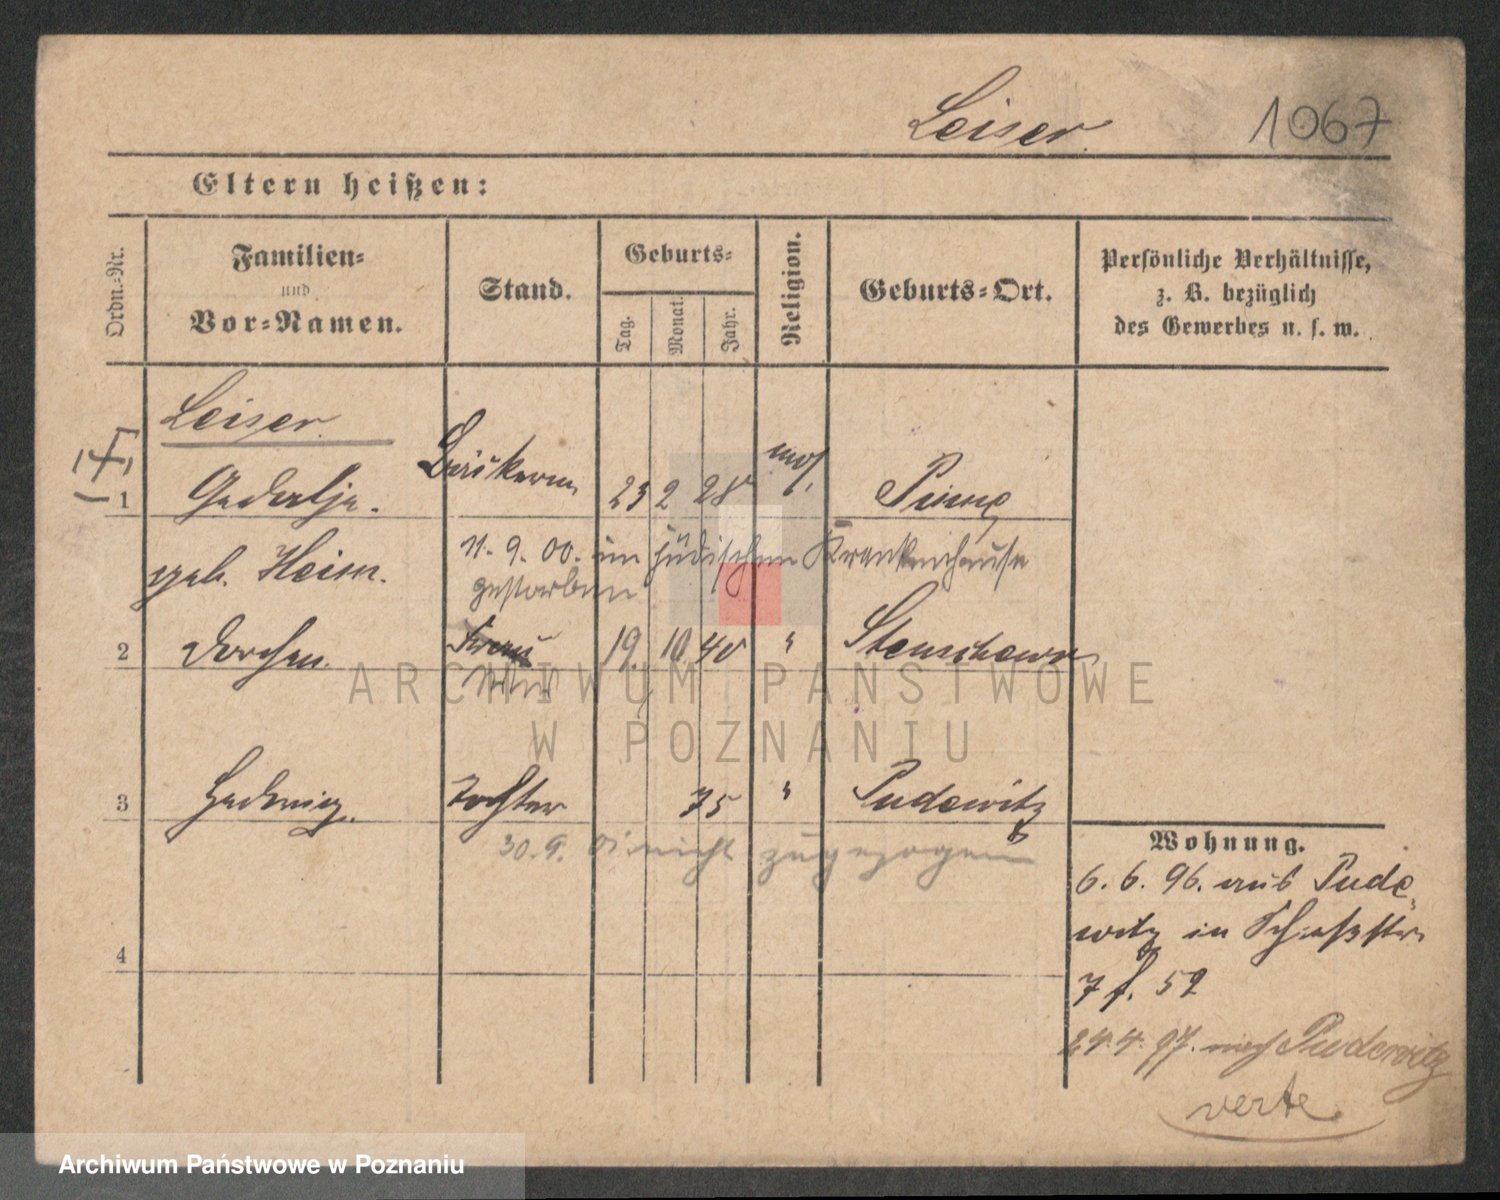 Leiser.
1067
Eltern heißen:
Ordn.-Nr.
Familien-
und
Vor-Namen.
Stand.
Geburts-
Tag.
Monat.
Jahr.
Religion.
Geburts-Ort.
Persönliche Verhältnisse,
z. B. bezüglich
des Gewerbes u. s. w.
Leiser.
1 Gedalje. 23 2 28 mos. Pinne
geb. Heim.
11. 9. 00. im jüdischen Krankenhause
gestorben
2 Dorchen. Frau 19. 10. 40 " Stenschewo
Wwe
3 Hedwig. Tochter 75 " Pudewitz
30. 9. nicht zugezogen
4
Wohnung.
6. 6. 96. aus Pude-
witz in Schießstr.
7 f. 52
24. 4. 97. nach Pudewitz
verte
ARCHIWUM PAŃSTWOWE
W POZNANIU
Archiwum Państwowe w Poznaniu